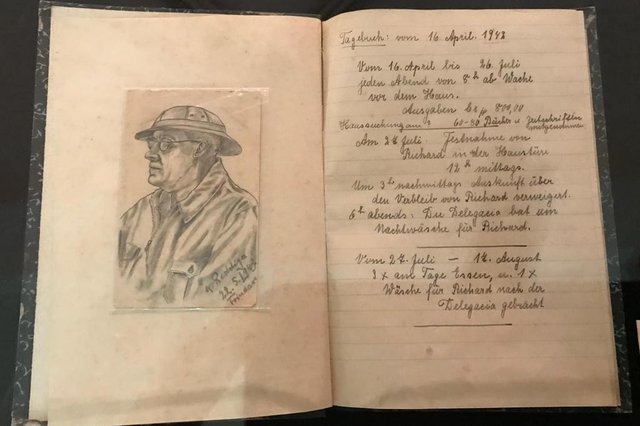 Tagebuch: vom 16 April. 1943
Vom 16. April bis 26. Juli
jeden Abend von 8ʰ ab Wache
vor dem Haus.
Ausgaben 800,00
Haussuchung am 60-80 Bücher u. Zeitschriften
mitgenommen
Am 27 Juli: Festnahme von
Richard in der Haustüre
12ʰ mittags.
Um 3ʰ nachmittags Auskunft über
den Verbleib von Richard verweigert.
6ʰ abends: Die Delegacia bat um
Nachtwäsche für Richard.
Vom 27. Juli — 17. August
3 x am Tage Essen, u. 1 x
Wäsche für Richard nach der
Delegacia gebracht